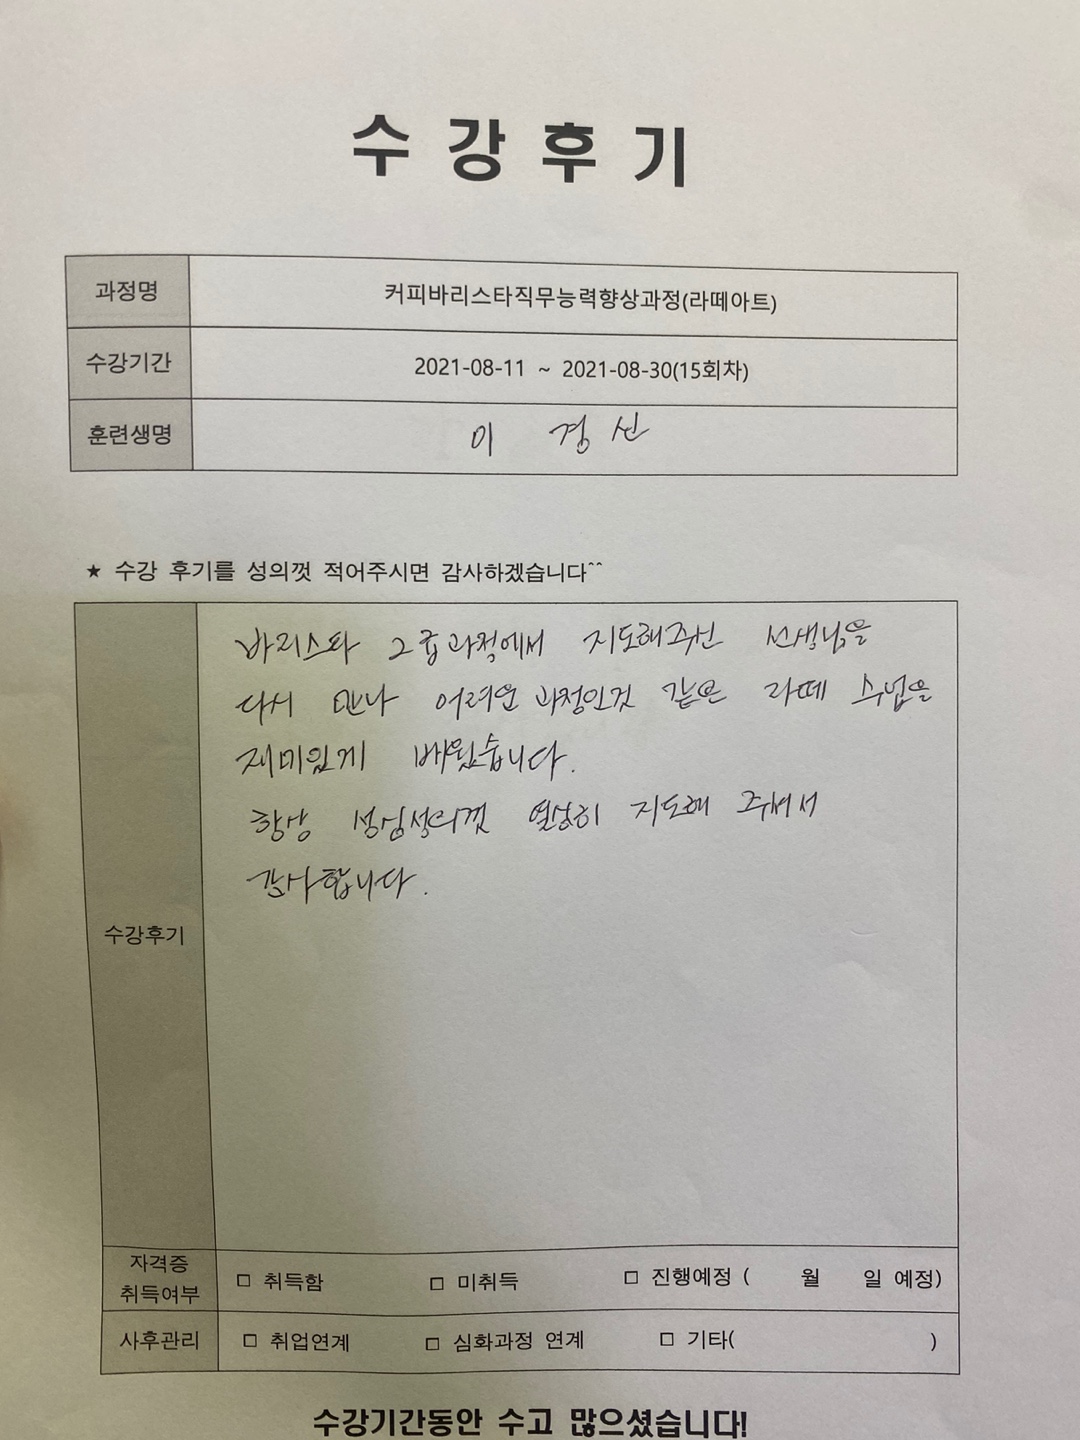 수강후기
과정명 커피바리스타직무능력향상과정(라떼아트)
수강기간 2021-08-11 ~ 2021-08-30(15회차)
훈련생명 이 경신
★ 수강 후기를 성의껏 적어주시면 감사하겠습니다^^
바리스타 2급과정에서 지도해주신 선생님을
다시 만나 어려운 과정인것 같은 라떼 수법을
재미있게 배웠습니다.
항상 성심성의껏 열심히 지도해 주셔서
감사합니다.
수강후기
자격증
취득여부 □ 취득함 □ 미취득 □ 진행예정 ( 월 일 예정)
사후관리 □ 취업연계 □ 심화과정 연계 □ 기타( )
수강기간동안 수고 많으셨습니다!